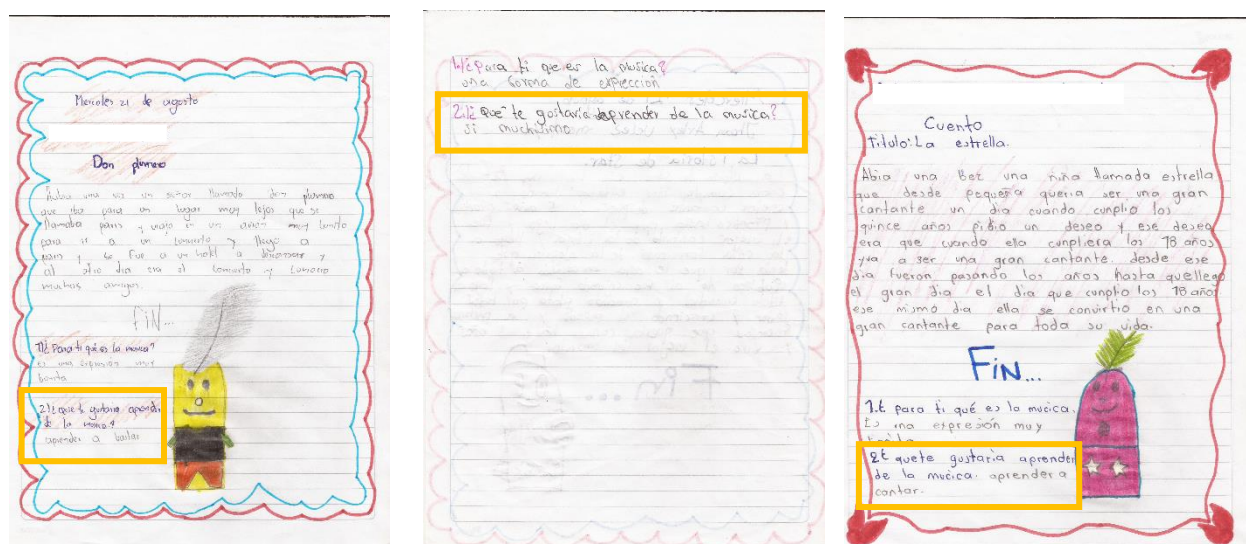 Miercoles 21 de agosto
Don plumero
Habia una vez un señor llamado don plumero
que iba para un lugar muy lejos que se
llamaba paris y viajo en un avion muy bonito
para ir a un concierto y llego a
paris y se fue a un hotel a descansar y
al otro dia era el concierto y conocio
muchos amigos.
FIN...
1¿ Para ti qué es la musica?
es una expresion muy
bonita
2¿ que te gustaria aprender
de la musica?
aprender a bailar
1.¿ para ti que es la musica?
una forma de expreccion
2.¿ Que te gustaria aprender de la musica?
si muchisimo
Cuento
Titulo: La estrella.
Abia una Bez una niña llamada estrella
que desde pequeña queria ser una gran
cantante un dia cuando cunplio los
quince años pidio un deseo y ese deseo
era que cuando ella cunpliera los 18 años
yva a ser una gran cantante. desde ese
dia fueron pasando los años hasta quellego
el gran dia el dia que cunplio los 18 años
ese mismo dia ella se convirtio en una
gran cantante para toda su vida.
FiN...
1.¿ para ti qué es la mucica.
Es una expresión muy
2¿ quete gustaria aprender
de la mucica. aprender a
cantar.